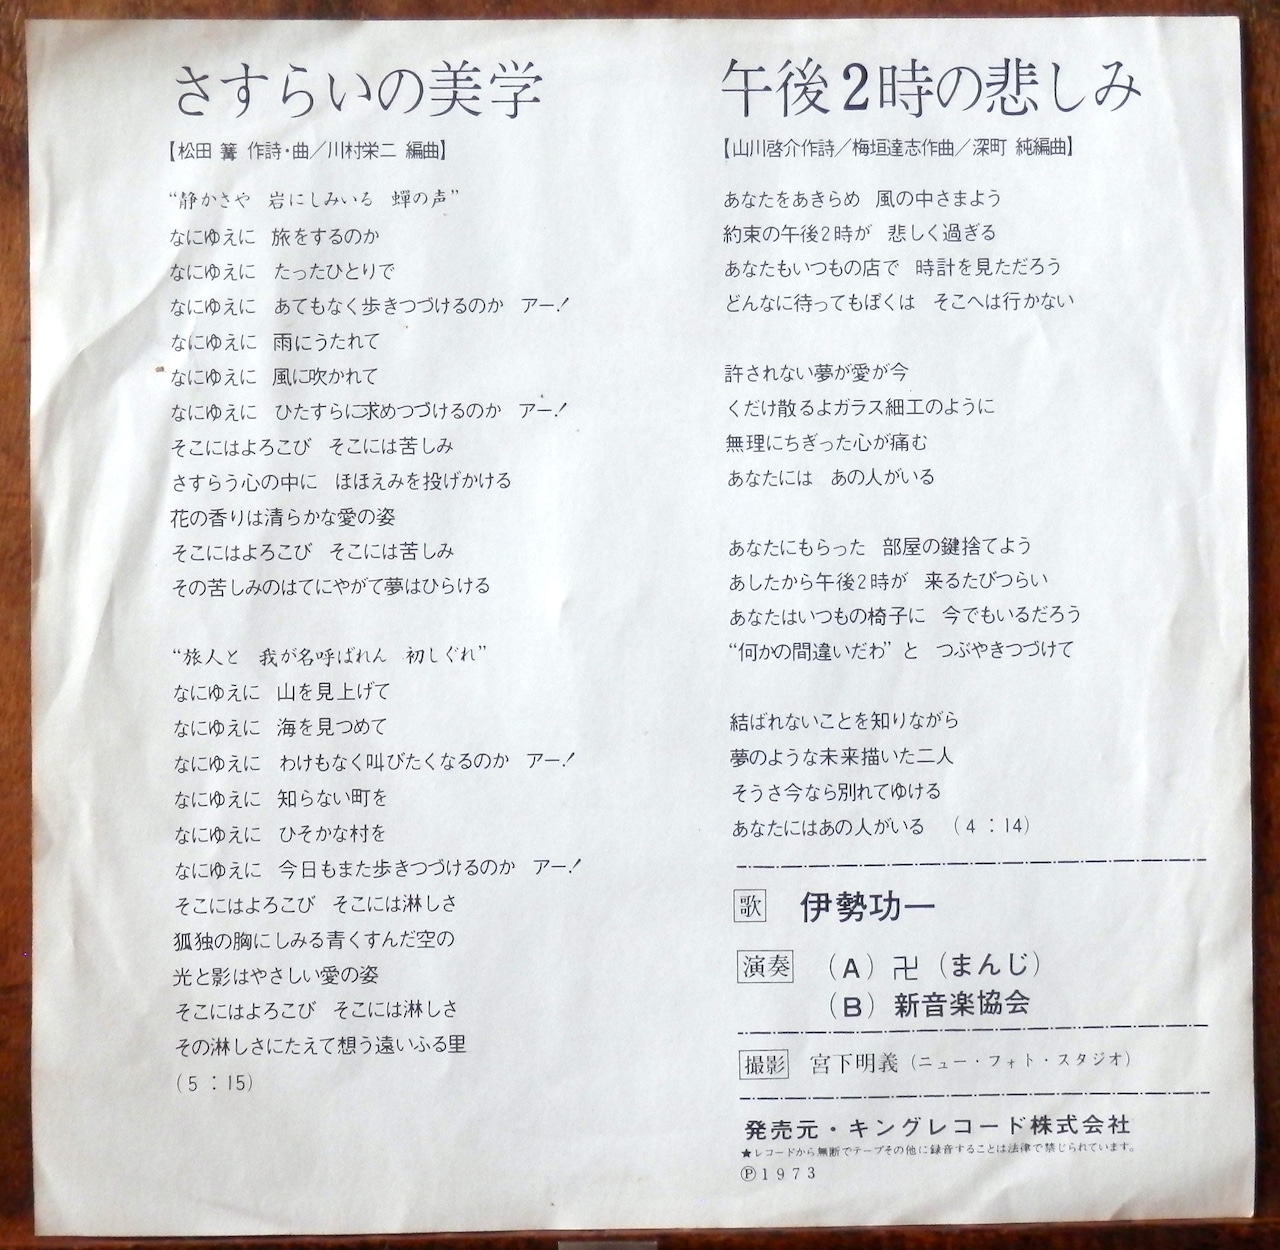 さすらいの美学
【松田 篝 作詩・曲／川村栄二 編曲】
“静かさや　岩にしみいる　蟬の声”
なにゆえに　旅をするのか
なにゆえに　たったひとりで
なにゆえに　あてもなく歩きつづけるのか　アー！
なにゆえに　雨にうたれて
なにゆえに　風に吹かれて
なにゆえに　ひたすらに求めつづけるのか　アー！
そこにはよろこび　そこには苦しみ
さすらう心の中に　ほほえみを投げかける
花の香りは清らかな愛の姿
そこにはよろこび　そこには苦しみ
その苦しみのはてにやがて夢はひらける
“旅人と　我が名呼ばれん　初しぐれ”
なにゆえに　山を見上げて
なにゆえに　海を見つめて
なにゆえに　わけもなく叫びたくなるのか　アー！
なにゆえに　知らない町を
なにゆえに　ひそかな村を
なにゆえに　今日もまた歩きつづけるのか　アー！
そこにはよろこび　そこには淋しさ
狐独の胸にしみる青くすんだ空の
光と影はやさしい愛の姿
そこにはよろこび　そこには淋しさ
その淋しさにたえて想う遠いふる里
（5：15）
午後2時の悲しみ
【山川啓介作詩／梅垣達志作曲／深町 純編曲】
あなたをあきらめ　風の中さまよう
約束の午後2時が　悲しく過ぎる
あなたもいつもの店で　時計を見ただろう
どんなに待ってもぼくは　そこへは行かない
許されない夢が愛が今
くだけ散るよガラス細工のように
無理にちぎった心が痛む
あなたには　あの人がいる
あなたにもらった　部屋の鍵捨てよう
あしたから午後2時が　来るたびつらい
あなたはいつもの椅子に　今でもいるだろう
“何かの間違いだわ”と　つぶやきつづけて
結ばれないことを知りながら
夢のような未来描いた二人
そうさ今なら別れてゆける
あなたにはあの人がいる　（4：14）
歌　伊勢功一
演奏　（A）卍（まんじ）
（B）新音楽協会
撮影　宮下明義（ニュー・フォト・スタジオ）
発売元・キングレコード株式会社
★レコードから無断でテープその他に録音することは法律で禁じられています。
Ⓟ1973